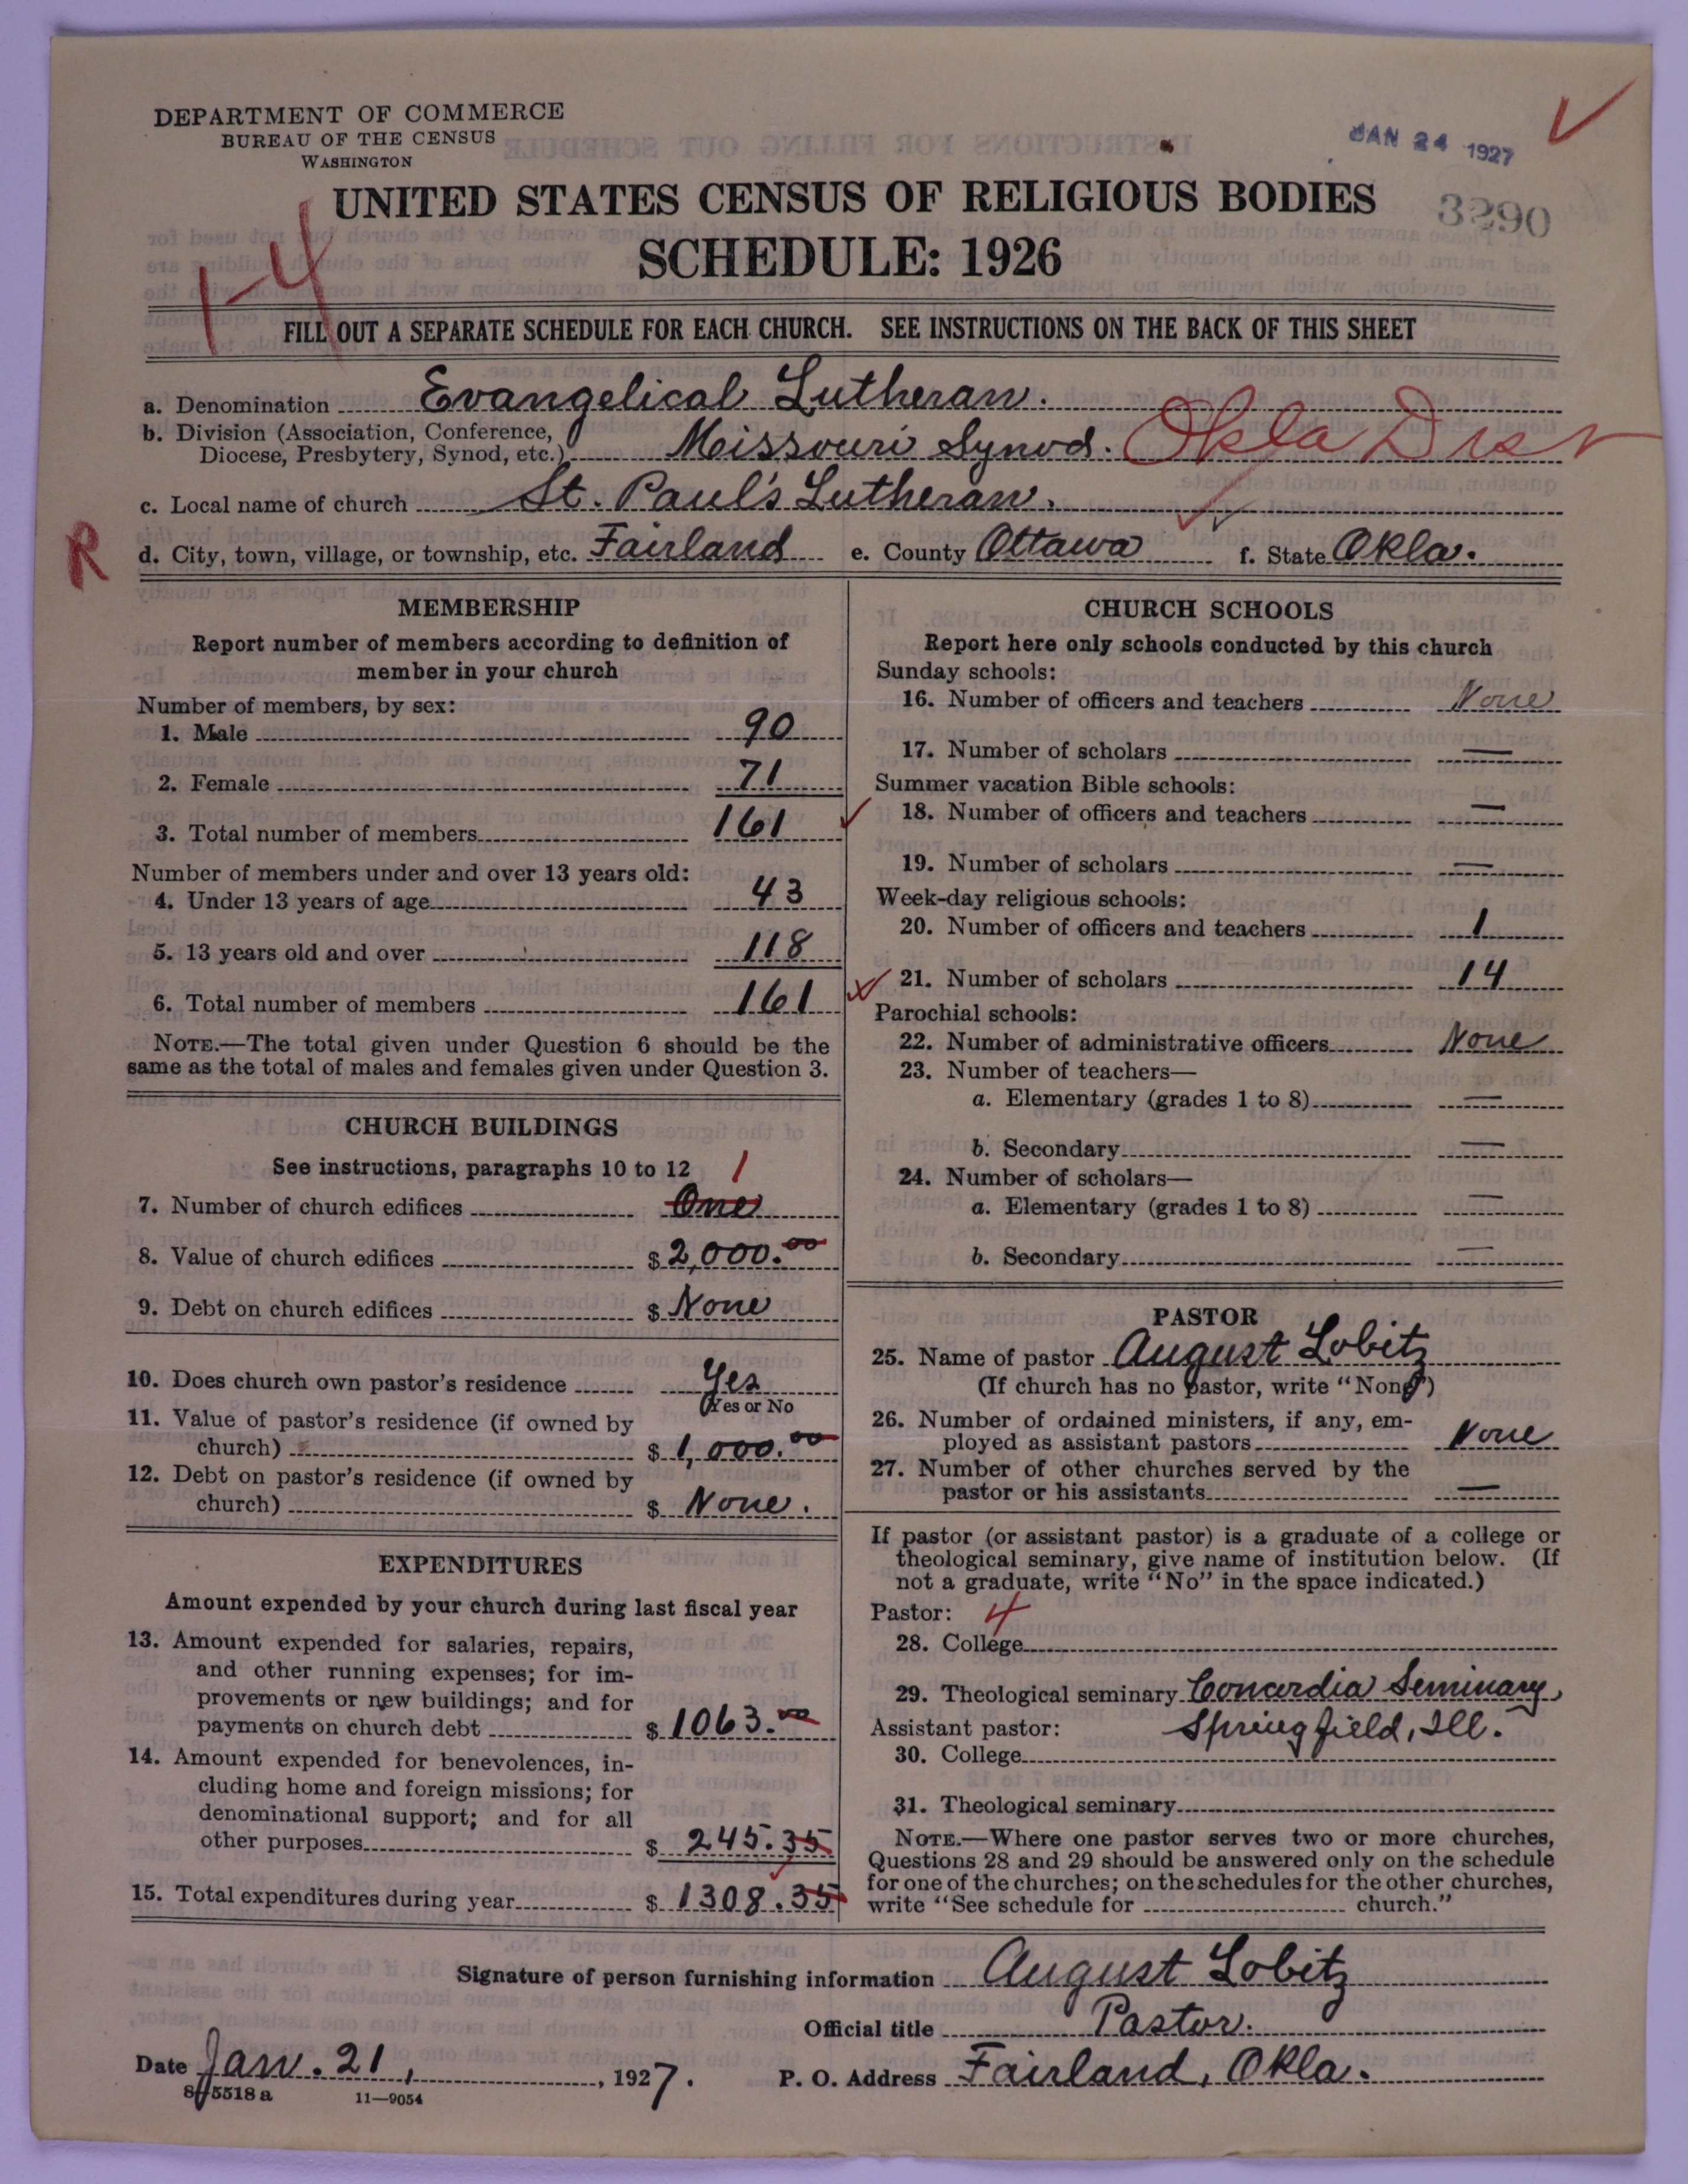 DEPARTMENT OF COMMERCE
BUREAU OF THE CENSUS
WASHINGTON
JAN 24 1927
UNITED STATES CENSUS OF RELIGIOUS BODIES
3290
SCHEDULE: 1926
1-4
FILL OUT A SEPARATE SCHEDULE FOR EACH CHURCH. SEE INSTRUCTIONS ON THE BACK OF THIS SHEET
a. Denomination Evangelical Lutheran.
b. Division (Association, Conference,
Diocese, Presbytery, Synod, etc.) Missouri Synod. Okla Dist
c. Local name of church St. Paul's Lutheran.
R
d. City, town, village, or township, etc. Fairland e. County Ottawa f. State Okla.
MEMBERSHIP
Report number of members according to definition of
member in your church
Number of members, by sex:
1. Male 90
2. Female 71
3. Total number of members 161
Number of members under and over 13 years old:
4. Under 13 years of age 43
5. 13 years old and over 118
6. Total number of members 161
NOTE.—The total given under Question 6 should be the
same as the total of males and females given under Question 3.
CHURCH BUILDINGS
See instructions, paragraphs 10 to 12 1
7. Number of church edifices One
8. Value of church edifices $ 2,000.00
9. Debt on church edifices $ None
10. Does church own pastor's residence Yes
(Yes or No
11. Value of pastor's residence (if owned by
church) $ 1,000.00
12. Debt on pastor's residence (if owned by
church) $ None.
EXPENDITURES
Amount expended by your church during last fiscal year
13. Amount expended for salaries, repairs,
and other running expenses; for im-
provements or new buildings; and for
payments on church debt $ 1063.00
14. Amount expended for benevolences, in-
cluding home and foreign missions; for
denominational support; and for all
other purposes $ 245.35
15. Total expenditures during year $ 1308.35
CHURCH SCHOOLS
Report here only schools conducted by this church
Sunday schools:
16. Number of officers and teachers None
17. Number of scholars —
Summer vacation Bible schools:
18. Number of officers and teachers —
19. Number of scholars —
Week-day religious schools:
20. Number of officers and teachers 1
21. Number of scholars 14
Parochial schools:
22. Number of administrative officers None
23. Number of teachers—
a. Elementary (grades 1 to 8) —
b. Secondary —
24. Number of scholars—
a. Elementary (grades 1 to 8) —
b. Secondary —
PASTOR
25. Name of pastor August Lobitz
(If church has no pastor, write "None")
26. Number of ordained ministers, if any, em-
ployed as assistant pastors None
27. Number of other churches served by the
pastor or his assistants —
If pastor (or assistant pastor) is a graduate of a college or
theological seminary, give name of institution below. (If
not a graduate, write "No" in the space indicated.)
Pastor: 4
28. College
29. Theological seminary Concordia Seminary,
Assistant pastor: Springfield, Ill.
30. College
31. Theological seminary
NOTE.—Where one pastor serves two or more churches,
Questions 28 and 29 should be answered only on the schedule
for one of the churches; on the schedules for the other churches,
write "See schedule for church."
Signature of person furnishing information August Lobitz
Official title Pastor.
Date Jan. 21, , 1927.
P. O. Address Fairland, Okla.
8-5518 a 11—9054